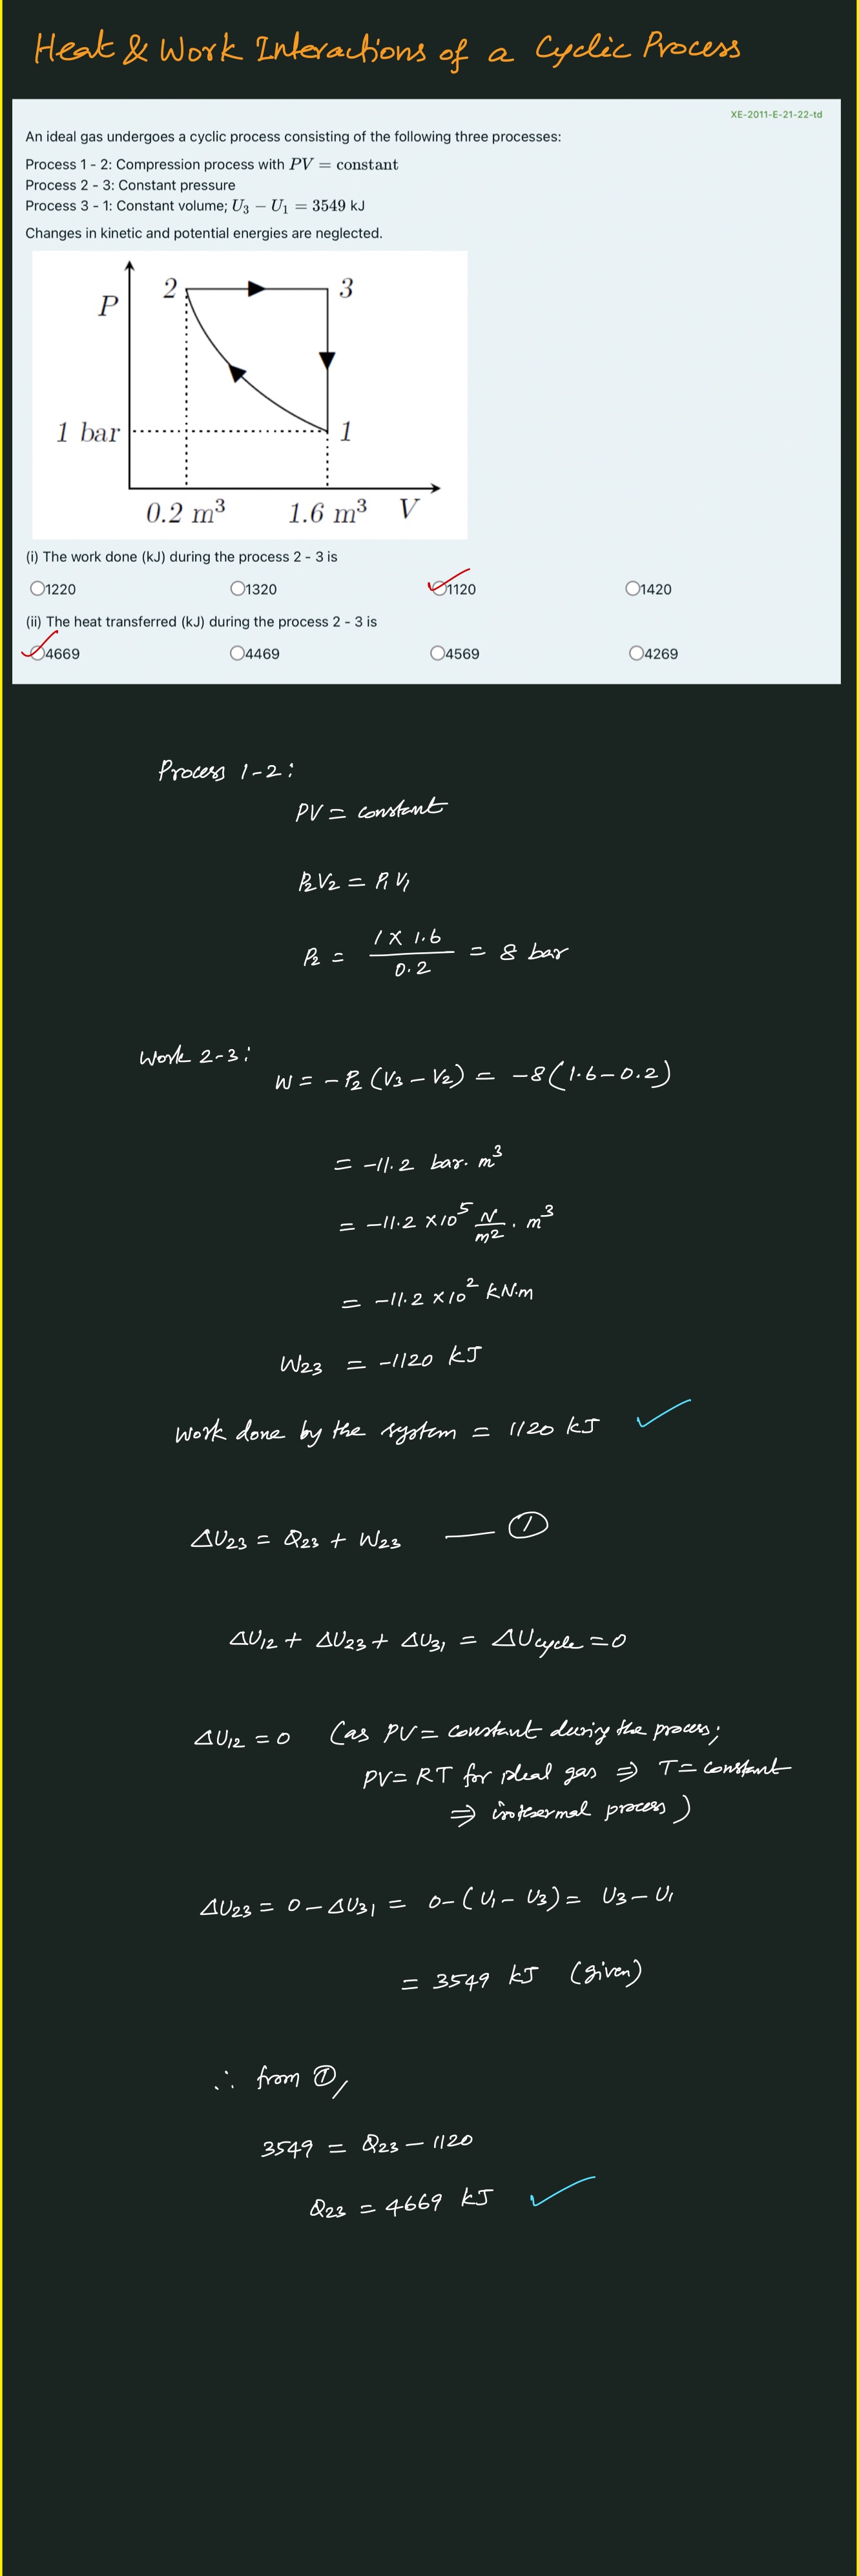 Heat & Work Interactions of a Cyclic Process
XE-2011-E-21-22-td
An ideal gas undergoes a cyclic process consisting of the following three processes:
Process 1 - 2: Compression process with PV = constant
Process 2 - 3: Constant pressure
Process 3 - 1: Constant volume; U₃ − U₁ = 3549 kJ
Changes in kinetic and potential energies are neglected.
P 2 3
1 bar 1
0.2 m³ 1.6 m³ V
(i) The work done (kJ) during the process 2 - 3 is
1220 1320 1120 1420
(ii) The heat transferred (kJ) during the process 2 - 3 is
4669 4469 4569 4269
Process 1-2:
PV = constant
P₂V₂ = P₁V₁
P₂ = (1 × 1.6)/0.2 = 8 bar
Work 2-3:
W = −P₂ (V₃ − V₂) = −8(1.6−0.2)
= −11.2 bar. m³
= −11.2 ×10⁵ N/m² . m³
= −11.2 ×10² kN.m
W₂₃ = −1120 kJ
Work done by the system = 1120 kJ ✓
ΔU₂₃ = Q₂₃ + W₂₃ — ①
ΔU₁₂ + ΔU₂₃ + ΔU₃₁ = ΔUcycle = 0
ΔU₁₂ = 0 (as PV = constant during the process;
PV = RT for ideal gas ⇒ T = constant
⇒ isothermal process)
ΔU₂₃ = 0 − ΔU₃₁ = 0−(U₁ − U₃) = U₃ − U₁
= 3549 kJ (given)
∴ from ①,
3549 = Q₂₃ − 1120
Q₂₃ = 4669 kJ ✓